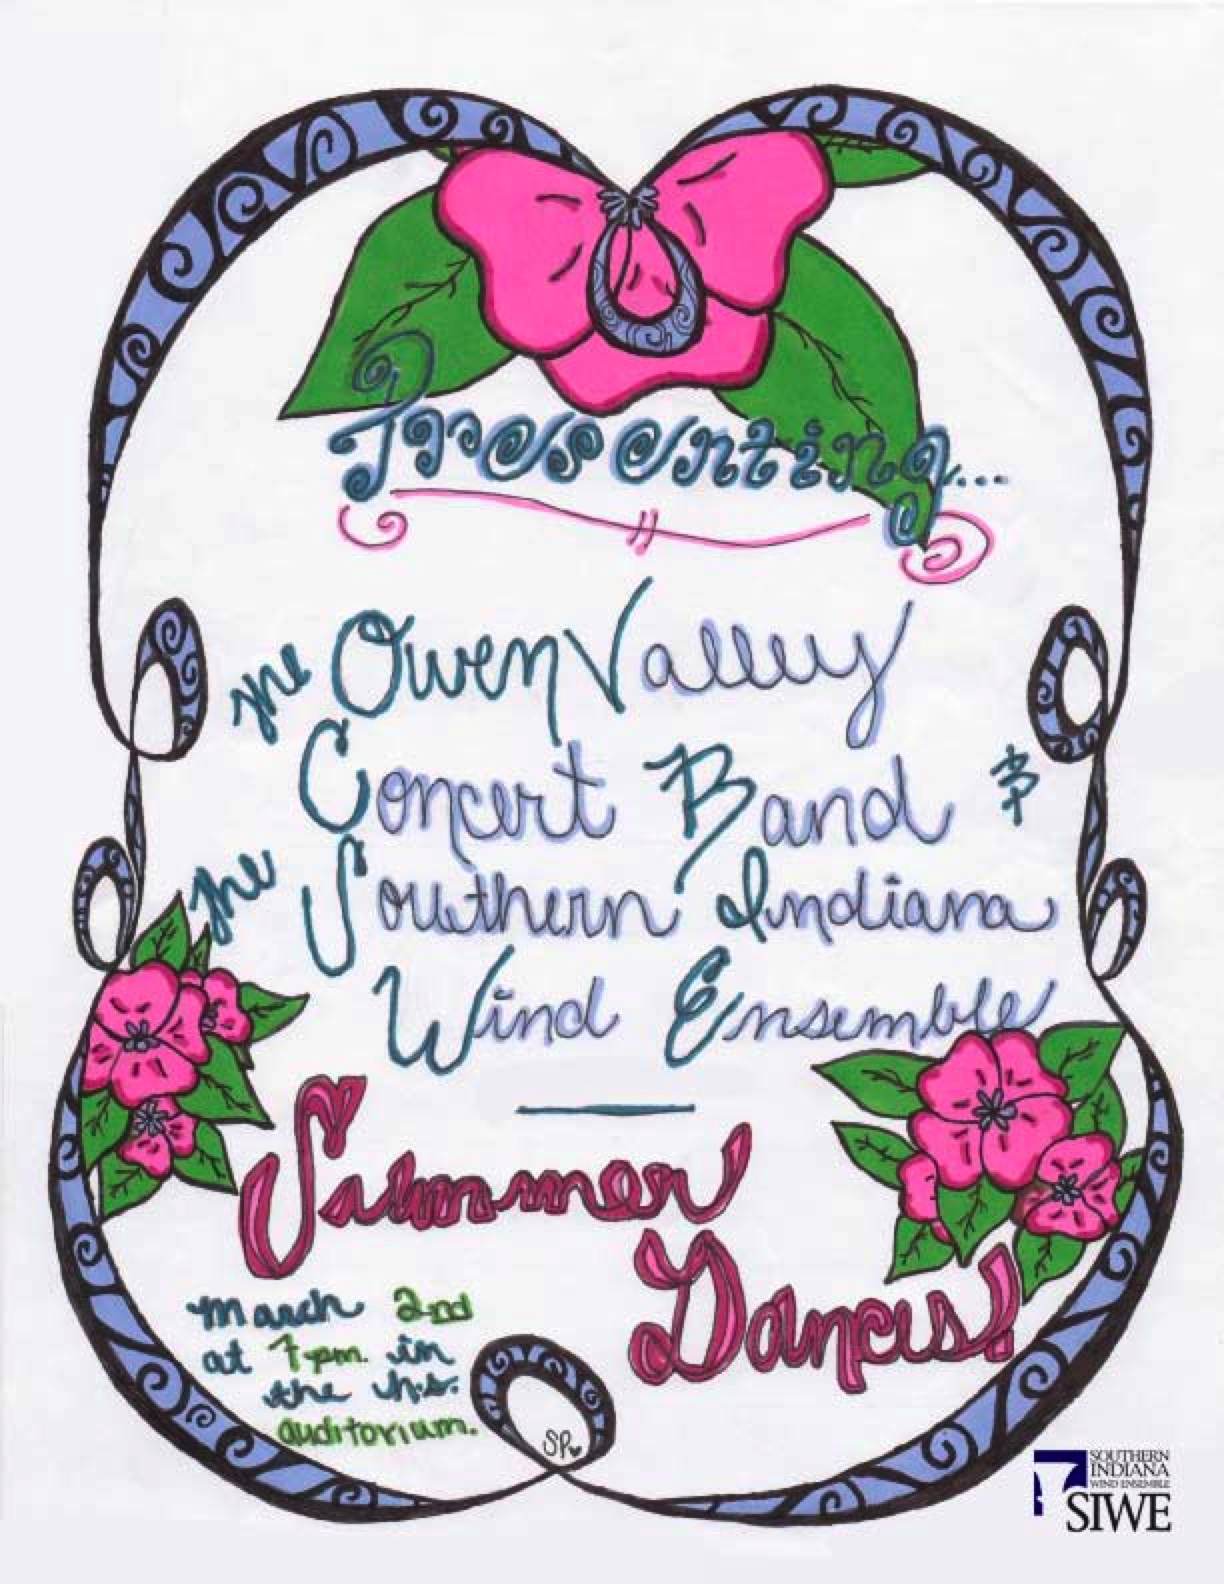 Presenting...
the Owen Valley
Concert Band &
the Southern Indiana
Wind Ensemble
Summer
Dances!
March 2nd
at 7pm. in
the h.s.
auditorium.
SP
SOUTHERN
INDIANA
WIND ENSEMBLE
SIWE